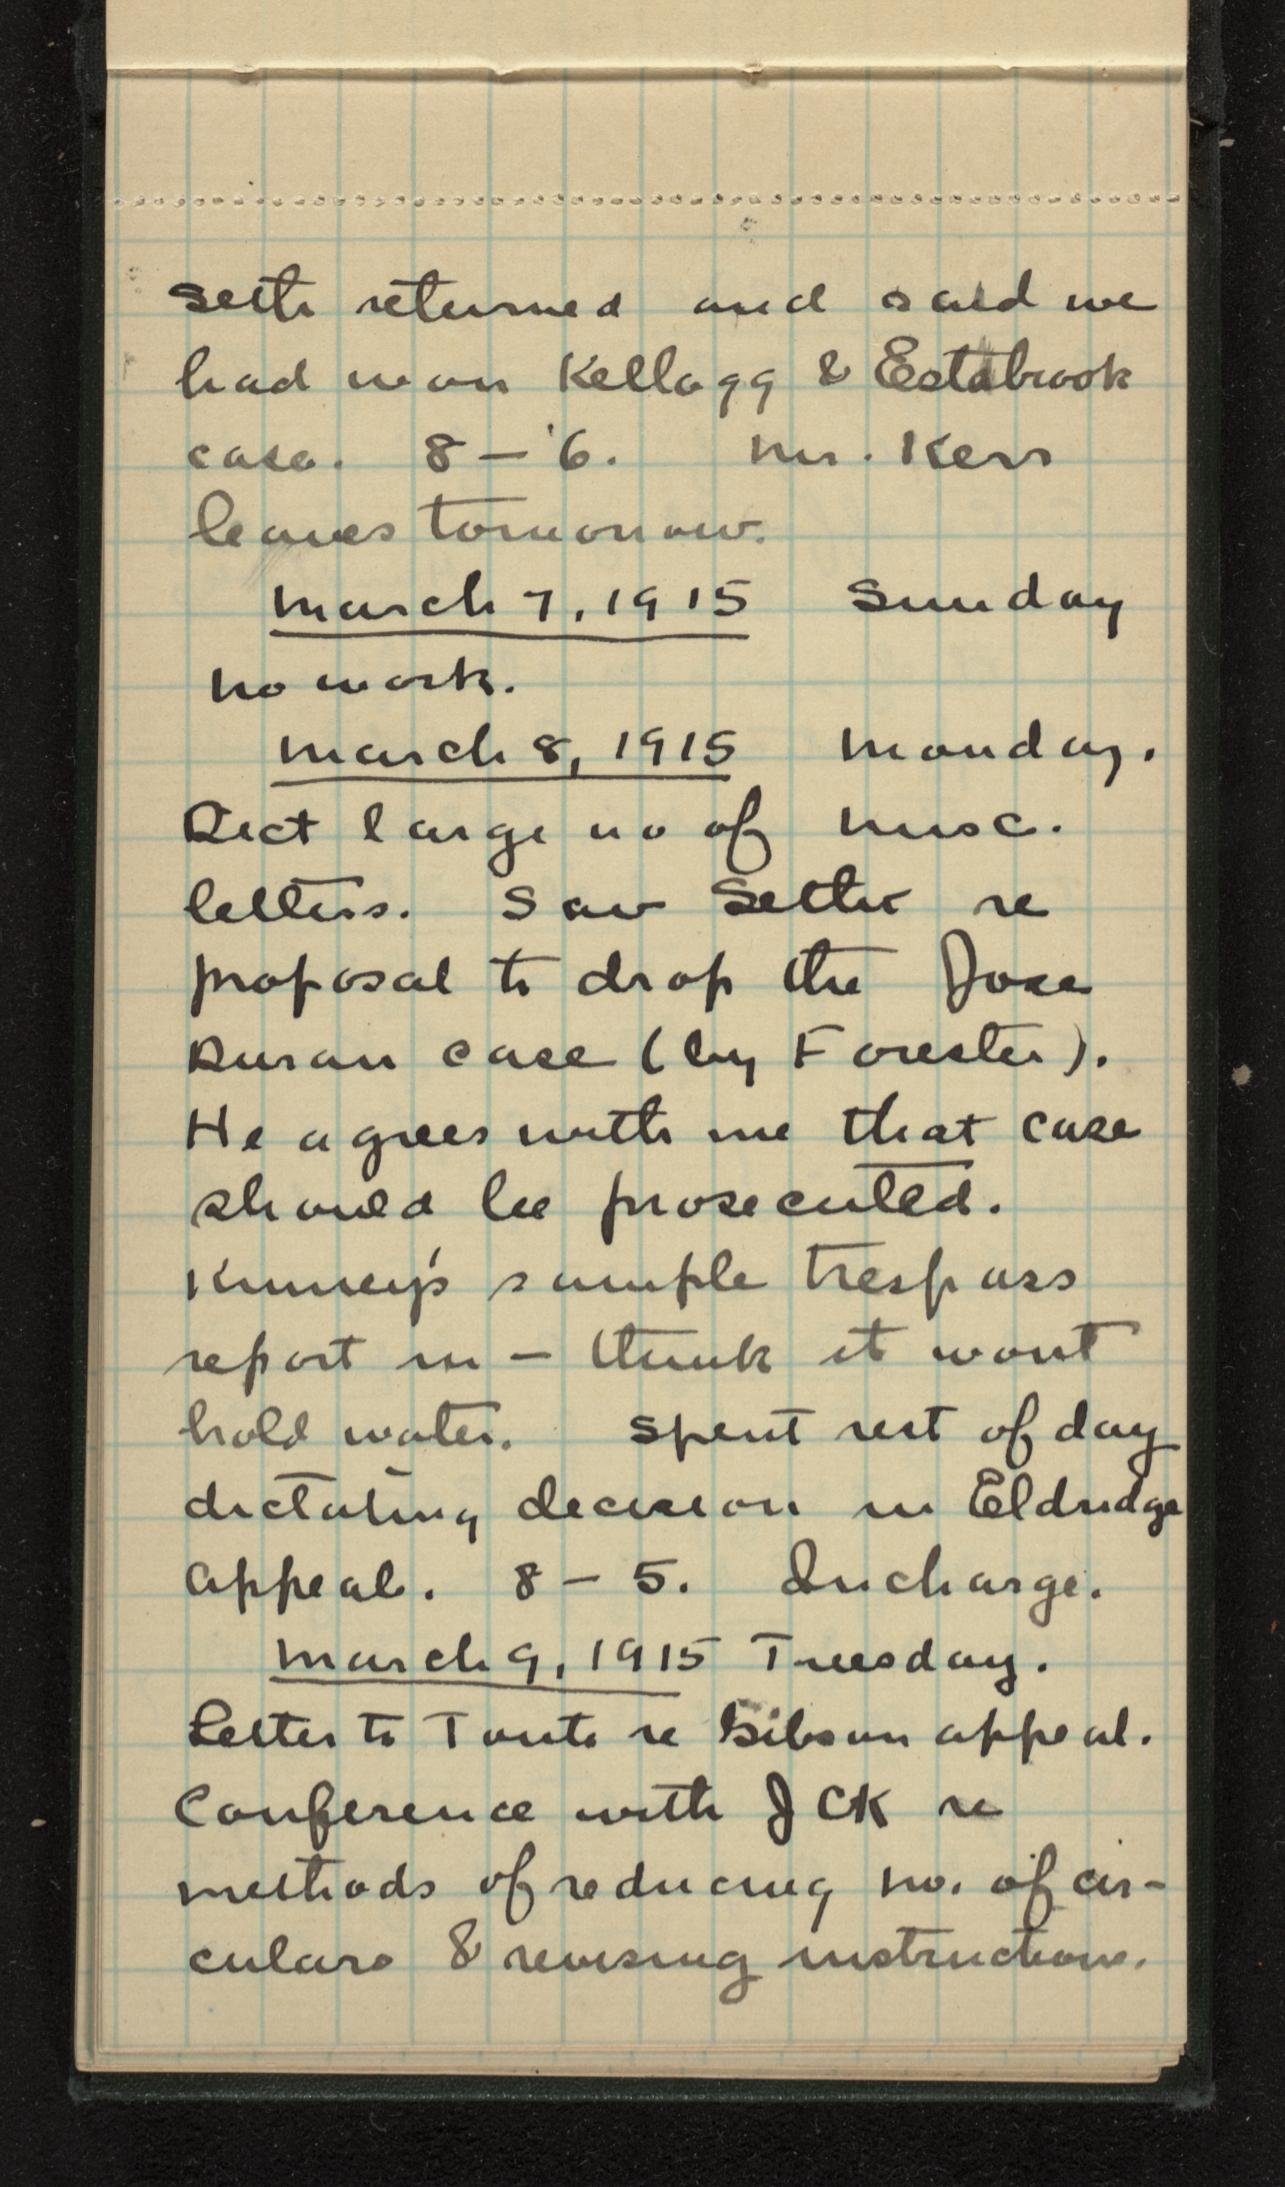 Seth returned and said we
had won Kellogg & Estabrook
case. 8 – 6. Mr. Kerr
leaves tomorrow.
March 7, 1915 Sunday
No work.
March 8, 1915 Monday.
Dict large no of misc.
letters. Saw Seth re
proposal to drop the Jose
Duran case (by Forester).
He agrees with me that case
should be prosecuted.
Kinney's sample trespass
report in – think it wont
hold water. Spent rest of day
dictating decision in Eldridge
appeal. 8 – 5. In charge.
March 9, 1915 Tuesday.
Letter to re Gibson appeal.
Conference with JCK re
methods of reducing no. of cir-
culars & revising instructions.